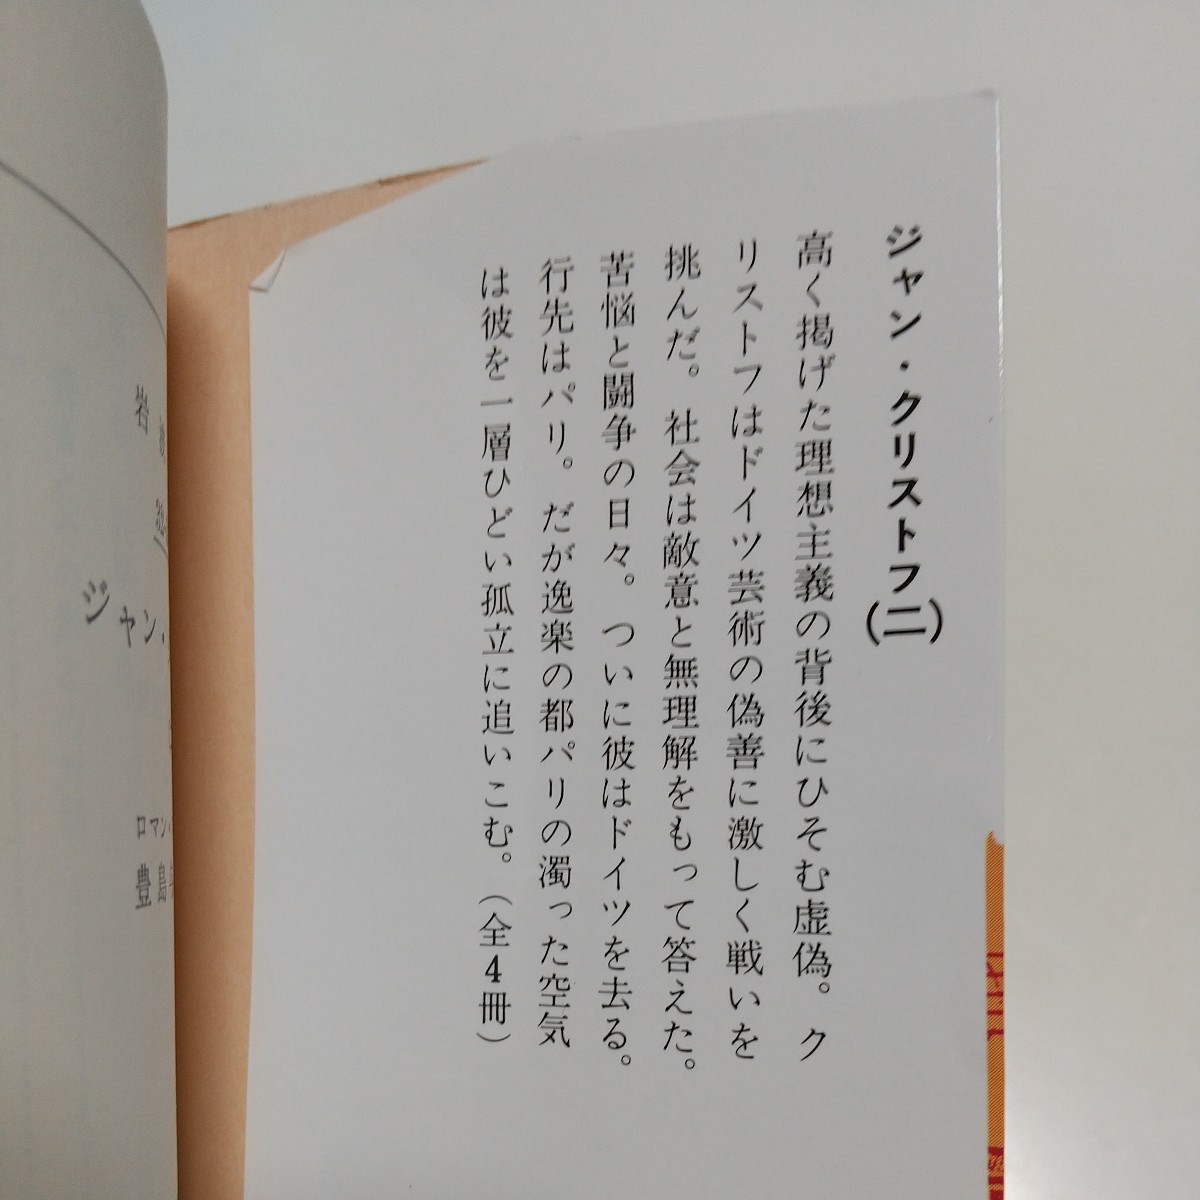 ジャン・クリストフ(二)
高く掲げた理想主義の背後にひそむ虚偽。ク
リストフはドイツ芸術の偽善に激しく戦いを
挑んだ。社会は敵意と無理解をもって答えた。
苦悩と闘争の日々。ついに彼はドイツを去る。
行先はパリ。だが逸楽の都パリの濁った空気
は彼を一層ひどい孤立に追いこむ。(全4冊)
岩波
ジャン・
ロマン・
豊島